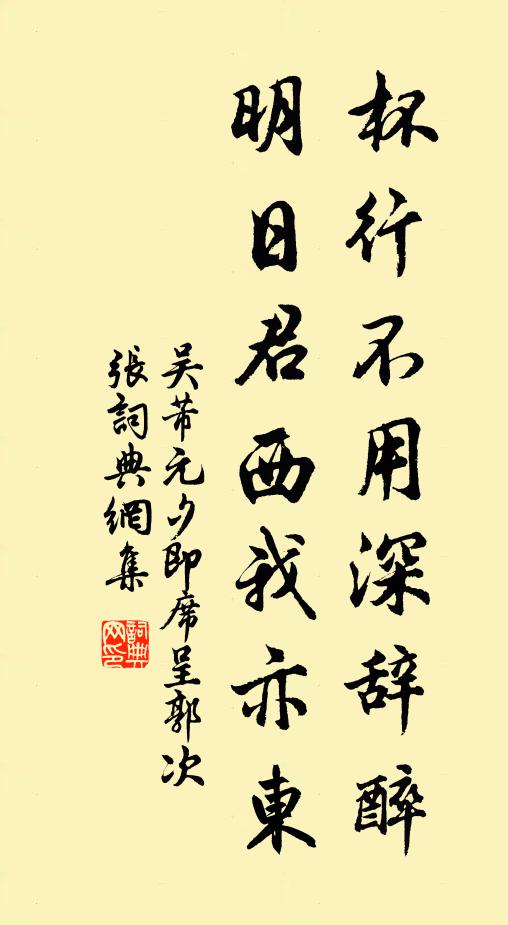 杯行不用深辞醉
明日君西我亦東
吴芾元夕即席呈郭次
張詞典網集
詞典
网印